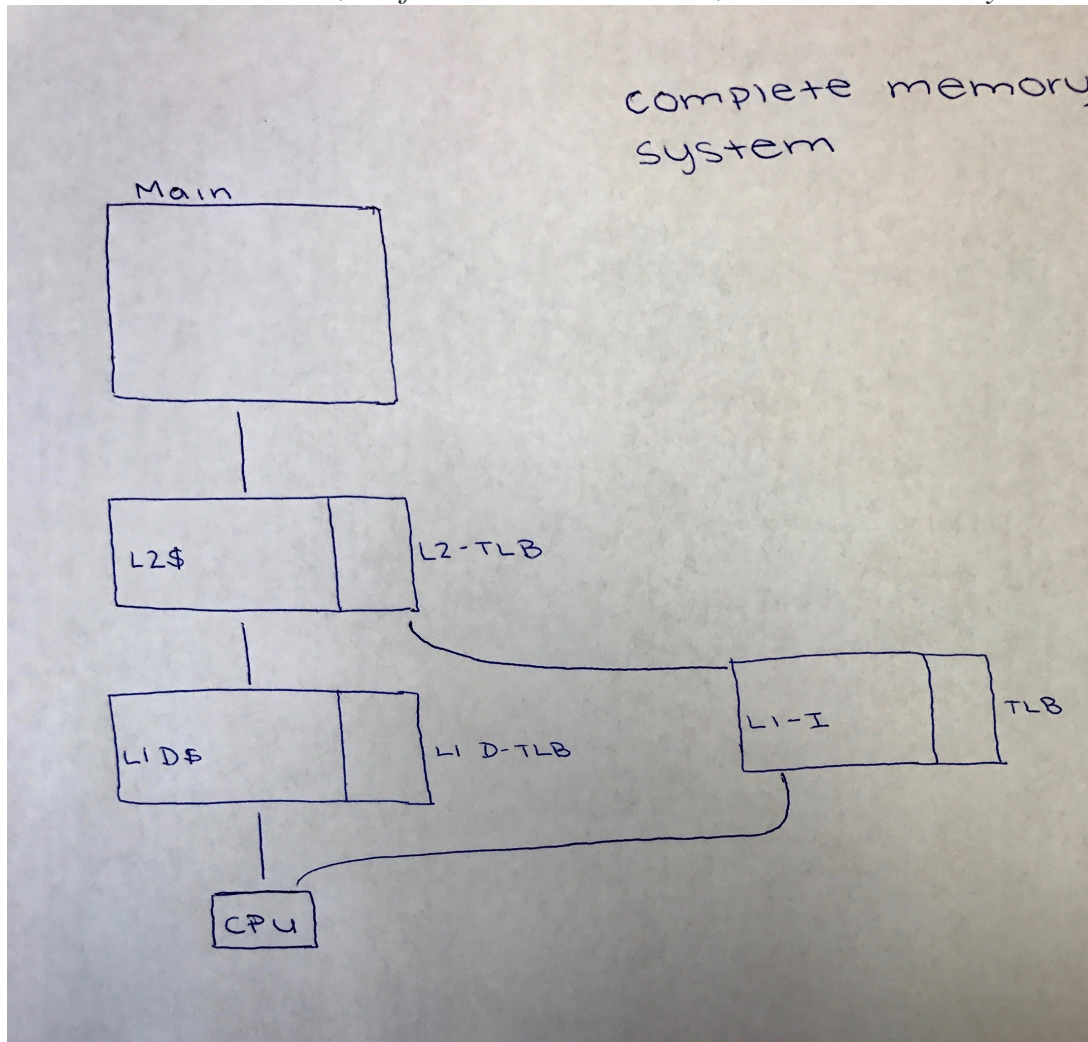 complete memory
system
Main
L2$
L2-TLB
L1-I
TLB
L1 D$
L1 D-TLB
CPU